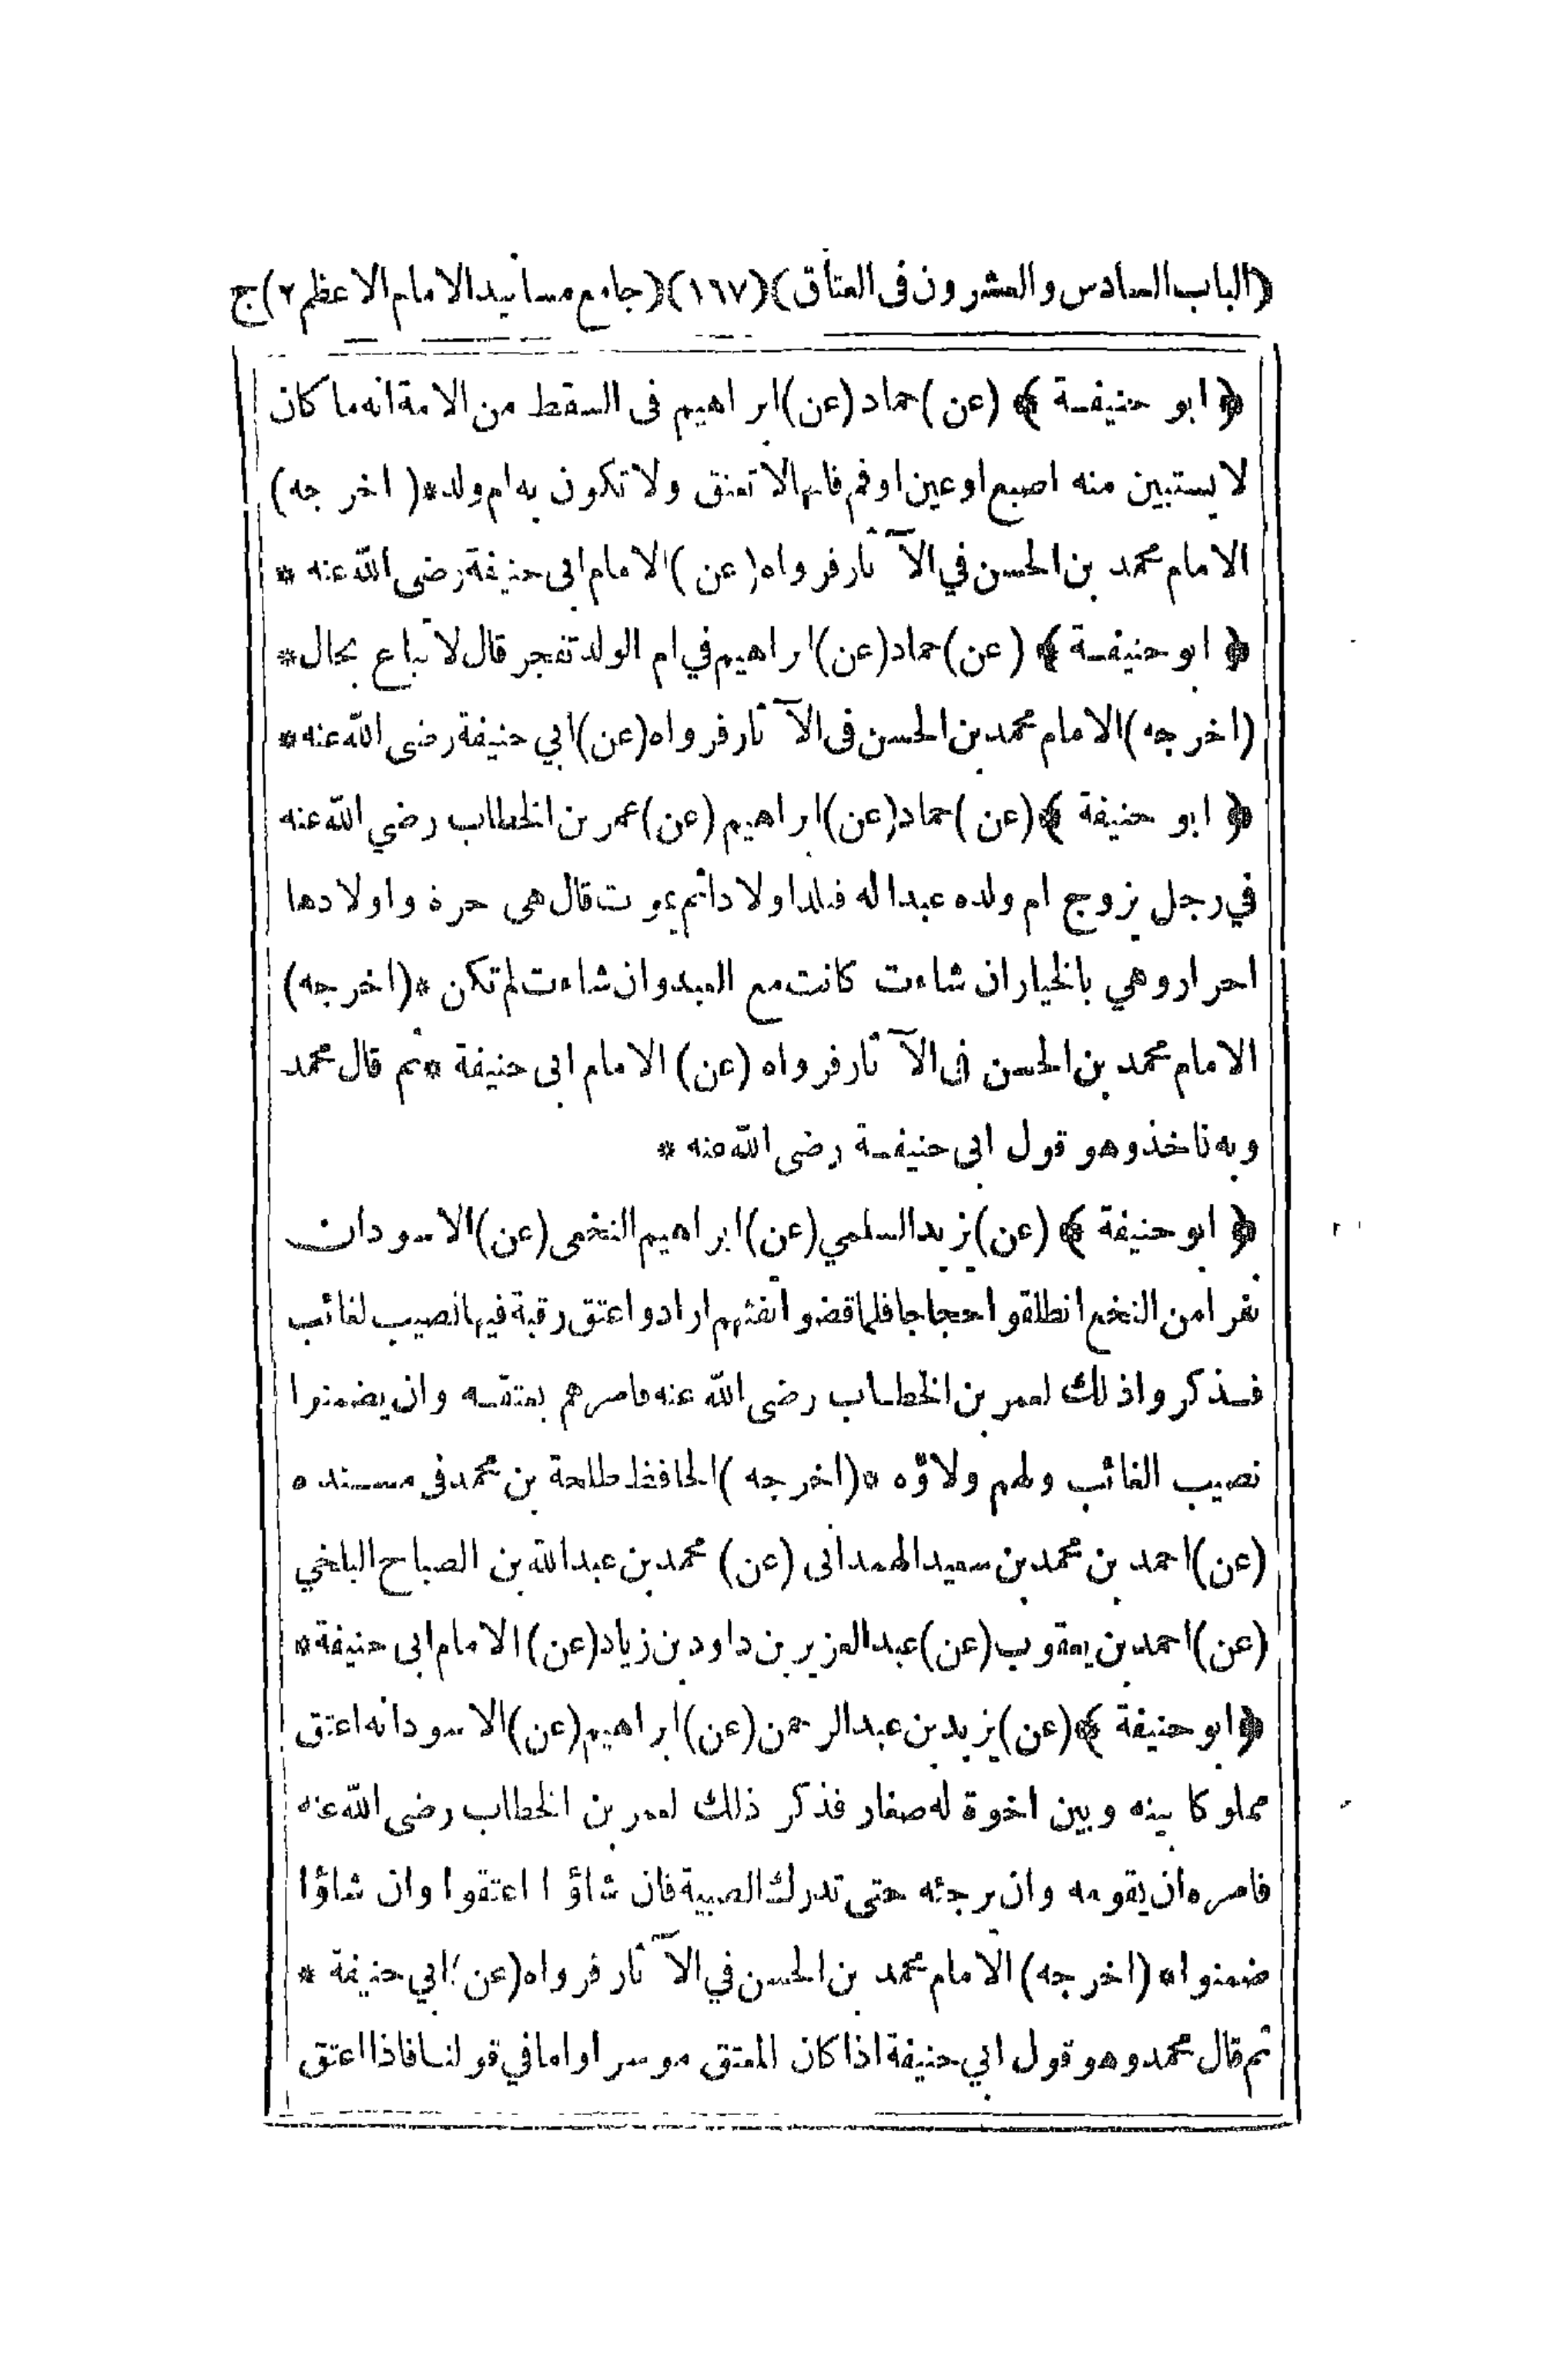 (الباب السادس والعشرون فى العتاق) (١٦٧) (جامع مسانيد الامام الاعظم ٢) ج
﴿ ابو حنيفة ﴾ (عن) حماد (عن) ابراهيم فى السقط من الامة انه ما كان
لا يستبين منه اصبع او عين او فم فانها لا تعتق ولا تكون به ام ولد * (اخرجه)
الامام محمد بن الحسن في الآثار فرواه (عن) الامام ابى حنيفة رضى الله عنه *
﴿ ابو حنيفة ﴾ (عن) حماد (عن) ابراهيم في ام الولد تفجر قال لا تباع بحال *
(اخرجه) الامام محمد بن الحسن فى الآثار فرواه (عن) ابي حنيفة رضى الله عنه *
﴿ ابو حنيفة ﴾ (عن) حماد (عن) ابراهيم (عن) عمر بن الخطاب رضي الله عنه
في رجل يزوج ام ولده عبدا له فتلد اولادا ثم يموت قال هى حرة واولادها
احرار وهي بالخيار ان شاءت كانت مع العبد وان شاءت لم تكن * (اخرجه)
الامام محمد بن الحسن فى الآثار فرواه (عن) الامام ابى حنيفة * ثم قال محمد
وبه ناخذ وهو قول ابى حنيفة رضى الله عنه *
﴿ ابو حنيفة ﴾ (عن) يزيد السلمي (عن) ابراهيم النخعى (عن) الاسود ان
نفرا من النخع انطلقوا حجاجا فلما قضوا تفثهم ارادوا عتق رقبة فيها نصيب لغائب
فذكروا ذلك لعمر بن الخطاب رضى الله عنه فامرهم بعتقه وان يضمنوا
نصيب الغائب ولهم ولاؤه * (اخرجه) الحافظ طلحة بن محمد فى مسنده
(عن) احمد بن محمد بن سعيد الهمدانى (عن) محمد بن عبد الله بن الصباح البلخي
(عن) احمد بن يعقوب (عن) عبد العزيز بن داود بن زياد (عن) الامام ابى حنيفة *
﴿ ابو حنيفة ﴾ (عن) يزيد بن عبد الرحمن (عن) ابراهيم (عن) الاسود انه اعتق
مملوكا بينه وبين اخوة له صغار فذكر ذلك لعمر بن الخطاب رضى الله عنه
فامره ان يقومه وان يرجئه حتى تدرك الصبية فان شاؤا اعتقوا وان شاؤا
ضمنوا * (اخرجه) الامام محمد بن الحسن في الآثار فرواه (عن) ابي حنيفة *
ثم قال محمد وهو قول ابي حنيفة اذا كان المعتق موسرا واما في قولنا فاذا اعتق